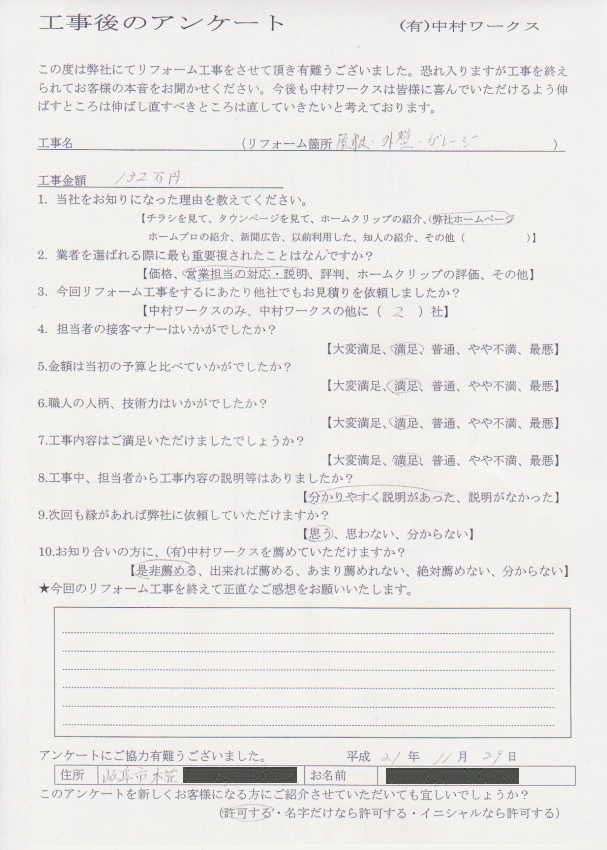 工事後のアンケート (有)中村ワークス
この度は弊社にてリフォーム工事をさせて頂き有難うございました。恐れ入りますが工事を終え
られてお客様の本音をお聞かせください。今後も中村ワークスは皆様に喜んでいただけるよう伸
ばすところは伸ばし直すべきところは直していきたいと考えております。
工事名 (リフォーム箇所 屋根・外壁・ガレージ )
工事金額 132万円
1. 当社をお知りになった理由を教えてください。
【チラシを見て、タウンページを見て、ホームクリップの紹介、弊社ホームページ
ホームプロの紹介、新聞広告、以前利用した、知人の紹介、その他( )】
2. 業者を選ばれる際に最も重要視されたことはなんですか?
【価格、営業担当の対応・説明、評判、ホームクリップの評価、その他】
3. 今回リフォーム工事をするにあたり他社でもお見積りを依頼しましたか?
【中村ワークスのみ、中村ワークスの他に( 2 )社】
4. 担当者の接客マナーはいかがでしたか?
【大変満足、満足、普通、やや不満、最悪】
5.金額は当初の予算と比べていかがでしたか?
【大変満足、満足、普通、やや不満、最悪】
6.職人の人柄、技術力はいかがでしたか?
【大変満足、満足、普通、やや不満、最悪】
7.工事内容はご満足いただけましたでしょうか?
【大変満足、満足、普通、やや不満、最悪】
8.工事中、担当者から工事内容の説明等はありましたか?
【分かりやすく説明があった、説明がなかった】
9.次回も縁があれば弊社に依頼していただけますか?
【思う、思わない、分からない】
10.お知り合いの方に、(有)中村ワークスを薦めていただけますか?
【是非薦める、出来れば薦める、あまり薦めれない、絶対薦めない、分からない】
★今回のリフォーム工事を終えて正直なご感想をお願いいたします。
アンケートにご協力有難うございました。 平成 21 年 11 月 29 日
住所 岐阜市本荘 お名前
このアンケートを新しくお客様になる方にご紹介させていただいても宜しいでしょうか?
(許可する・名字だけなら許可する・イニシャルなら許可する)